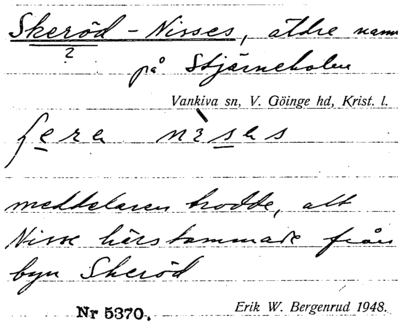 Skeröd - Nisses, äldre namn
?
på Stjärneholm
Vankiva sn, V. Göinge hd, Krist. l.
nises
meddelaren trodde, att
Nisse härstammade från
byn Skeröd
Nr 5370.
Erik W. Bergenrud 1948.